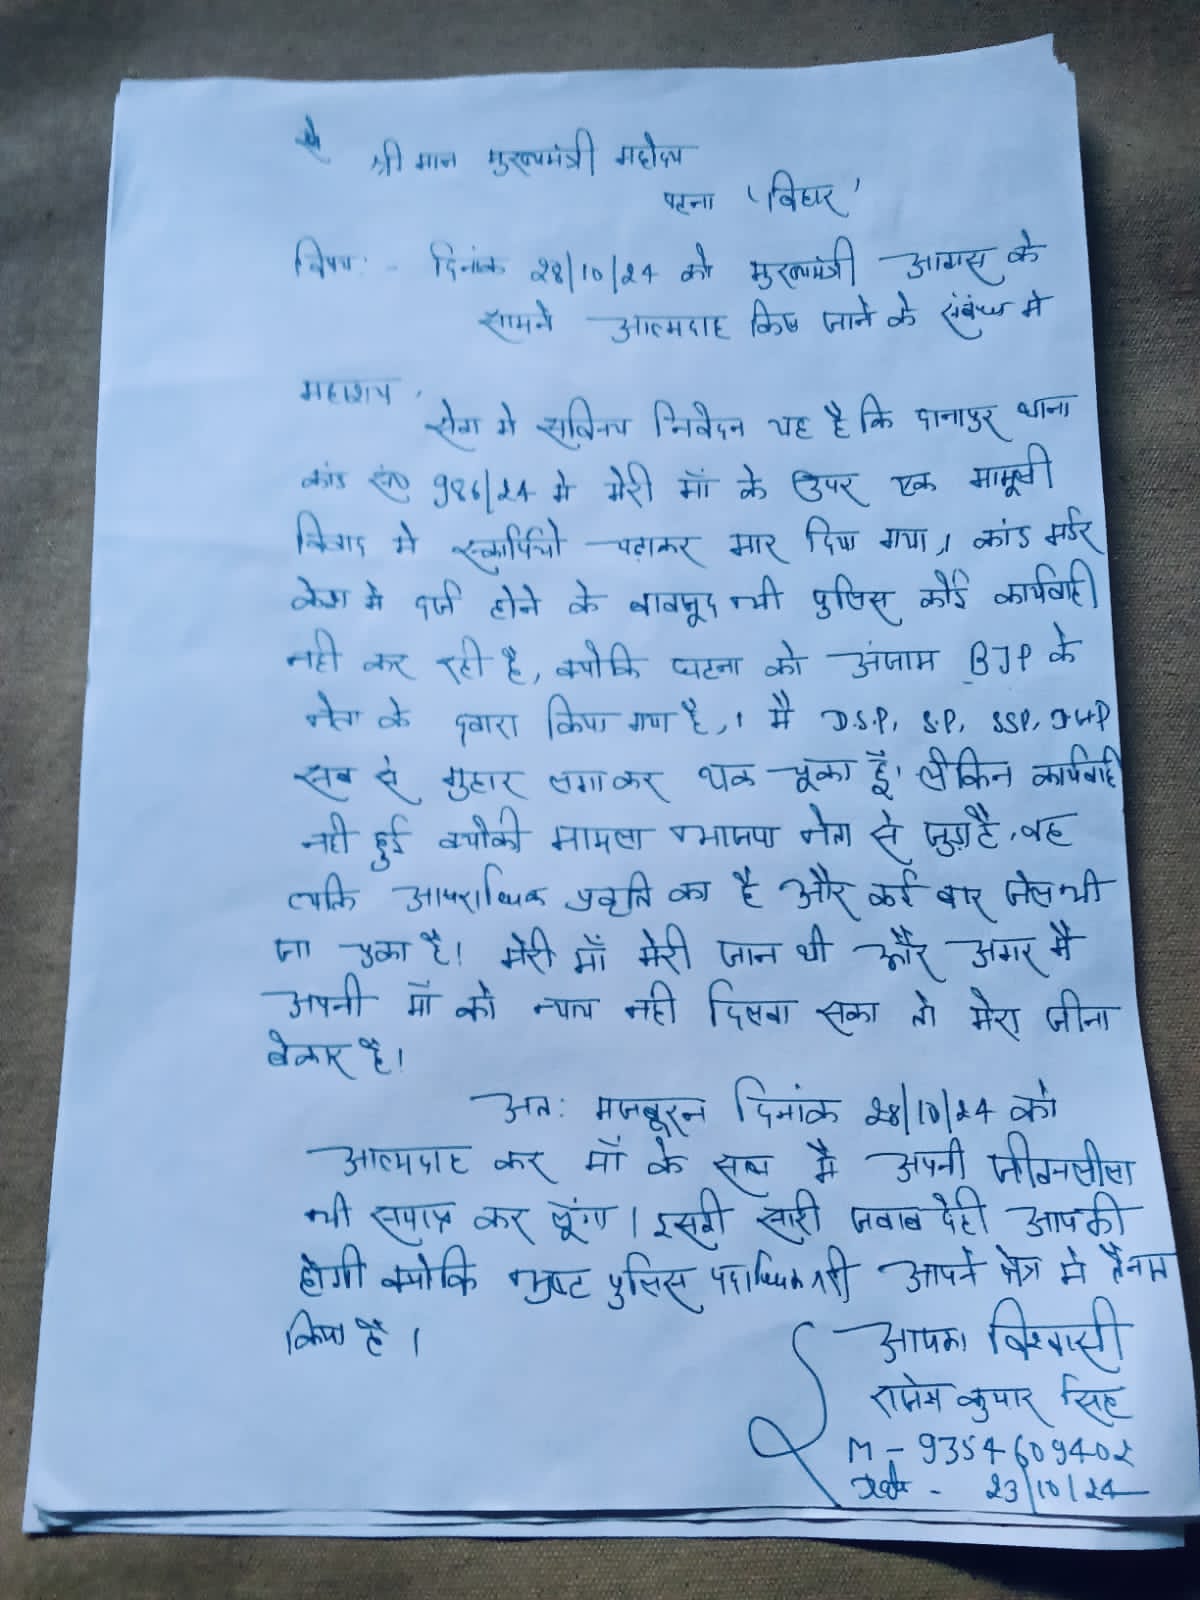 श्री मान मुख्यमंत्री महोदय
पटना 'बिहार'
विषय:- दिनांक 28/10/24 को मुख्यमंत्री आवास के
सामने आत्मदाह किए जाने के संबंध मे
महाशय,
सेवा मे सविनय निवेदन यह है कि दानापुर थाना
कांड सं० 986/24 मे मेरी माँ के उपर एक मामूली
विवाद मे स्कार्पियो चढ़ाकर मार दिया गया,। कांड मर्डर
केस मे दर्ज होने के बावजूद भी पुलिस कोई कार्यवाही
नही कर रही है, क्योकि घटना को अंजाम BJP के
नेता के द्वारा किया गया है,। मै D.S.P, S.P, SSP,
सब से गुहार लगाकर थक चूका हूँ। लेकिन कार्यवाही
नही हुई क्योकी मामला भाजपा नेता से जुड़ा है, वह
व्यक्ति आपराधिक प्रवृति का है और कई बार जेल भी
जा चुका है। मेरी माँ मेरी जान थी और अगर मै
अपनी माँ को न्याय नही दिलवा सका तो मेरा जीना
बेकार है।
अतः मजबूरन दिनांक 28/10/24 को
आत्मदाह कर माँ के साथ मै अपनी जीवनलीला
भी समाप्त कर लूंगा। इसकी सारी जवाब देही आपकी
होगी क्योकि भ्रष्ट पुलिस पदाधिकारी आपने क्षेत्र मे तैनात
किया है।
आपका विश्वासी
कुमार सिंह
M - 9354609402
23/10/24